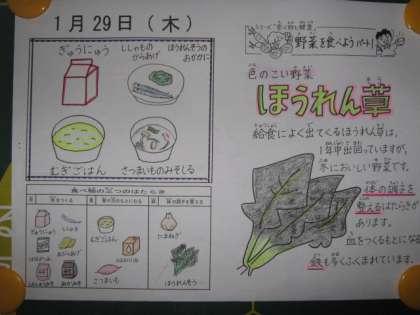 1月29日(木)
ぎゅうにゅう
ししゃもの
からあげ
ほうれんそうの
おかかに
むぎごはん
さつまいものみそしる
食べ物の三つのはたらき
ししゃも
むぎごはん
さつまいも
たまねぎ
ほうれんそう
野菜を食べようパート!
色のこい野菜
ほうれん草
給食によく出てくるほうれん草は、
1年中出回っていますが、
冬においしい野菜です。
体の調子を
整えるはたらきが
あります。
血をつくるもとになる
鉄も多くふくまれています。